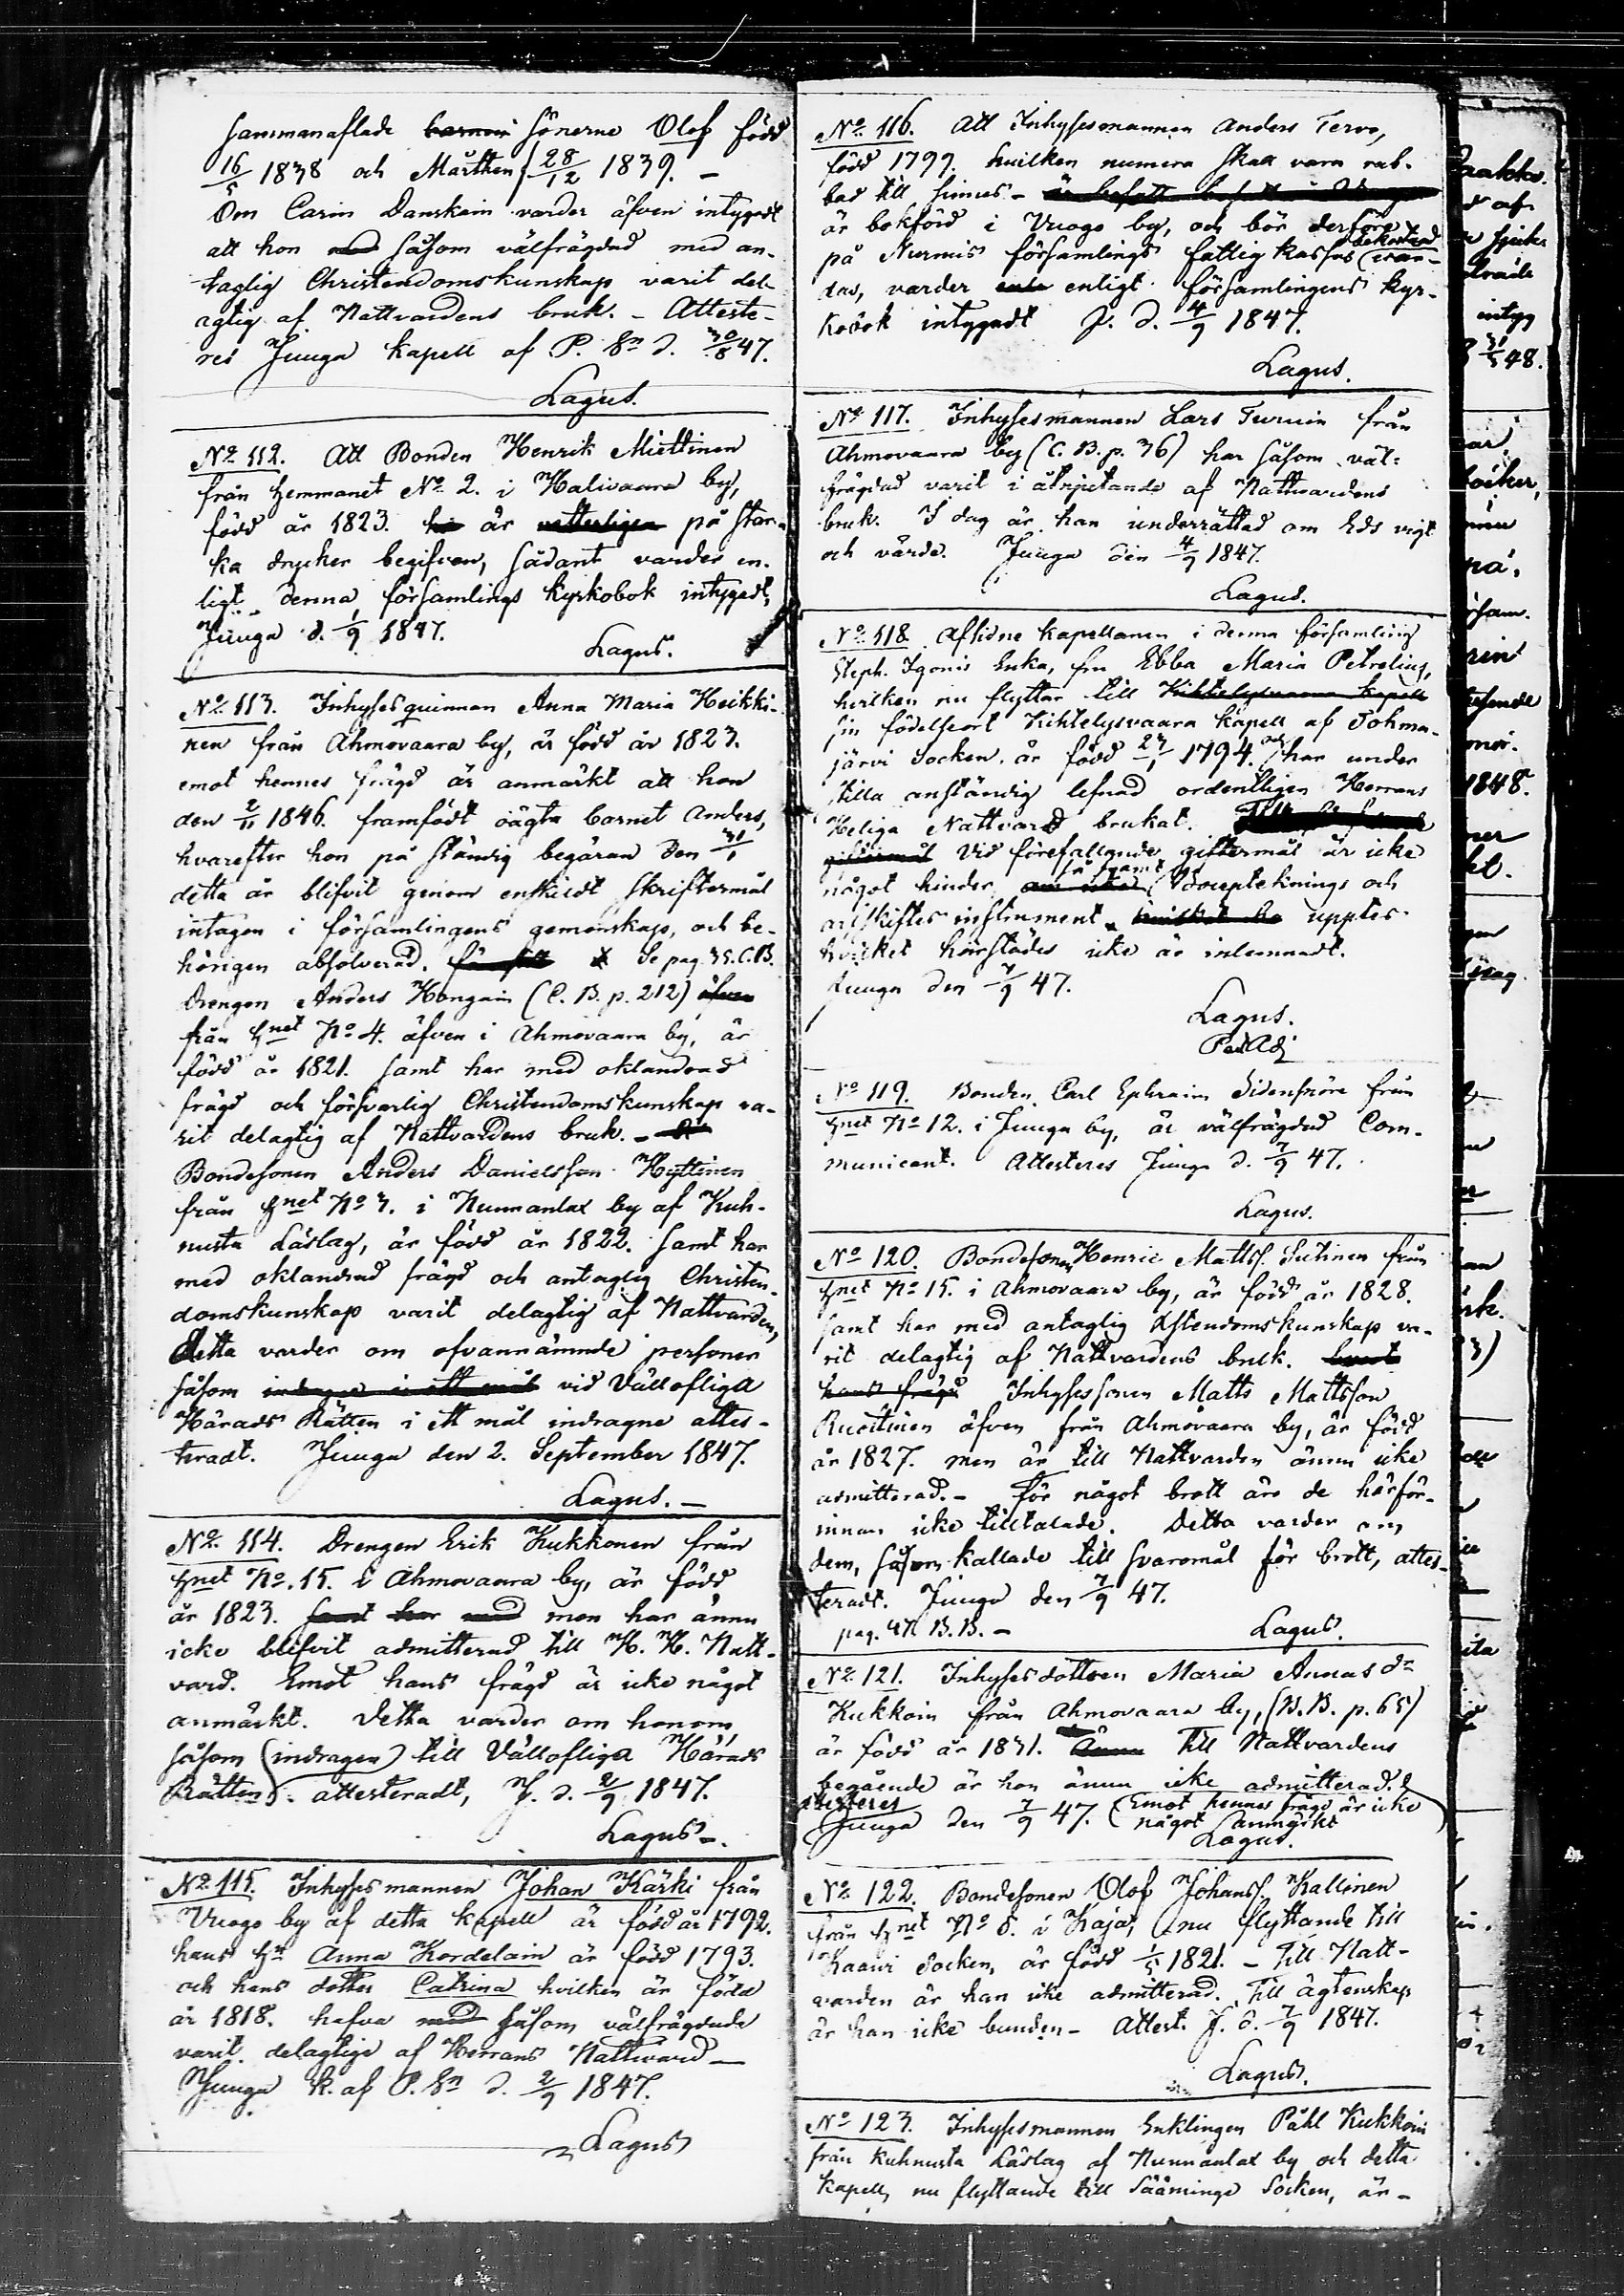 sammanaflade barnen sönerne Olof född
16/5 1838 och Mårthen 28/12 1839. –
Om Carin Danskain varder äfven intygadt
att hon med såsom välfrägdad med an-
taglig Christendomskunskap varit del-
agtig af Nattvardens bruk. – Atteste-
res Juuga kapell af P. Sn d. 30/8 47.
Lagus.
No 112. Att Bonden Henrik Miettinen
från hemmanet No 2. i Halivaara by,
född år 1823. är på star-
ka drycker begifven, sådant varder en-
ligt denna församlings kyrkobok intygadt,
Juuga d. 1/9 1847.
Lagus.
No 113. Inhysesqvinnan Anna Maria Heikki-
nen från Ahmovaara by, är född år 1823.
emot hennes frägd är anmärkt att hon
den 2/11 1846. framfödt oägta barnet Anders,
hvarefter hon på ständig begäran den 31/1
detta år blifvit genom enskildt skriftermål
intagen i församlingens gemenskap, och be-
hörigen absolverad. Se pag. 35. C.B.
Drengen Anders Hongain (C. B. p. 212) äfven
från hnet No 4. äfven i Ahmovaara by, är
född år 1821. samt har med oklandrad
frägd och försvarlig Christendomskunskap va-
rit delagtig af Nattvardens bruk. –
Bondesonen Anders Danielsson Hyttinen
från hnet No 3. i Nunnanlax by af Kuh-
nusta Läslag, är född år 1822. samt har
med oklandrad frägd och antaglig Christen-
domskunskap varit delagtig af Nattvarden,
Detta varder om ofvannämnde personer
såsom indragne i ett mål vid Vällofliga
Härads Rätten i ett mål indragne attes-
teradt. Juuga den 2. September 1847.
Lagus. –
No 114. Drengen Erik Kukkonen från
hnet No. 15. i Ahmovaara by, är född
år 1823. samt har med men har ännu
icke blifvit admitterad till H. H. Natt-
vard. Emot hans frägd är icke något
anmärkt. Detta varder om honom,
såsom (indragen) till Vällofliga Härads
Rätten). attesteradt, J. d. 2/9 1847.
Lagus –.
No 115. Inhysesmannen Johan Kärki från
Vuogo by af detta kapell är född år 1792.
hans hu Anna Kordelain är född 1793.
och hans dotter Catrina hvilken är född
år 1818. hafva med såsom välfrägdade
varit delagtige af Herrans Nattvard –
Juuga K. af P. Sn d. 2/9 1847.
Lagus
No 116. Att Inhysesmannen Anders Tervo,
född 1799. hvilken numera skall vara rub-
bad till sinnes –
är bokförd i Vuogo by, och bör derföre
bekostad
på Nurmis församlings fattig kassas (vår-
das, varder enligt församlingens kyr-
kobok intygadt J. d. 4/9 1847.
Lagus.
No 117. Inhysesmannen Lars Turuin från
Ahmovaara by (C. B. p. 36) har såsom väl-
frägdad varit i åtnjutande af Nattvardens
bruk. I dag är han underrättad om Eds vigt
och värde. Juuga den 4/9 1847.
Lagus.
No 118. Aflidne kapellanen i denna församling
Steph. Igonis Enka, fru Ebba Maria Petrelius,
hvilken nu flyttar till Kihtelysvaara kapell
sin födelseort Kihtelysvaara kapell af Tohma-
järvi Socken. är född 23/1 1794. och har under
stilla anständig lefnad ordentligen Herrans
Heliga Nattvard brukat.
giftermål Vid förefallande giftermål är icke
så framt
något hinder, Bouptecknings och
arfskiftes instrument upptes
hvilket härstädes icke är inlemnadt.
Juuga den 7/9 47.
Lagus.
Past Adj
No 119. Bonden Carl Ephraim Sidensnöre från
hnet No 12. i Juuga by, är välfrägdad Com-
municant. Attesteres Juuga d. 7/9 47.
Lagus.
No 120. Bondesonen Henric Matts. Sutinen från
hnet No 15. i Ahmovaara by, är född år 1828.
samt har med antaglig Xstendomskunskap va-
rit delagtig af Nattvardens bruk. Emot
hans frägd Inhysessonen Matts Mattsson
Ruottinen äfven från Ahmovaara by, är född
år 1827. men är till Nattvarden ännu icke
admitterad. – För något brott äro de härför-
innan icke tilltalade. Detta varder om
dem, såsom kallade till svaromål för brott, attes-
teradt. Juuga den 7/9 47.
pag. 47. B.B. –
Lagus.
No 121. Inhysesdottren Maria Annas dr
Kukkoin från Ahmovaara by, (B. B. p. 65)
är född år 1831. Ännu Till Nattvardens
begående är hon ännu icke admitterad.
Attesteres
Juuga den 7/9 47. (Emot hennes frägd är icke
något anmärkt)
Lagus.
No 122. Bondesonen Olof Johanss. Kallinen
från hnet No 8. i Kaja, nu flyttande till
Kaavi Socken, är född 1/5 1821. – Till Natt-
varden är han icke admitterad. Till ägtenskap
är han icke bunden – Attest. J. d. 7/9 1847.
Lagus.
No 123. Inhysesmannen Enklingen Påhl Kukkoin
från Kuhnusta Läslag af Nunnanlax by och detta
kapell, nu flyttande till Sääminge Socken, är –